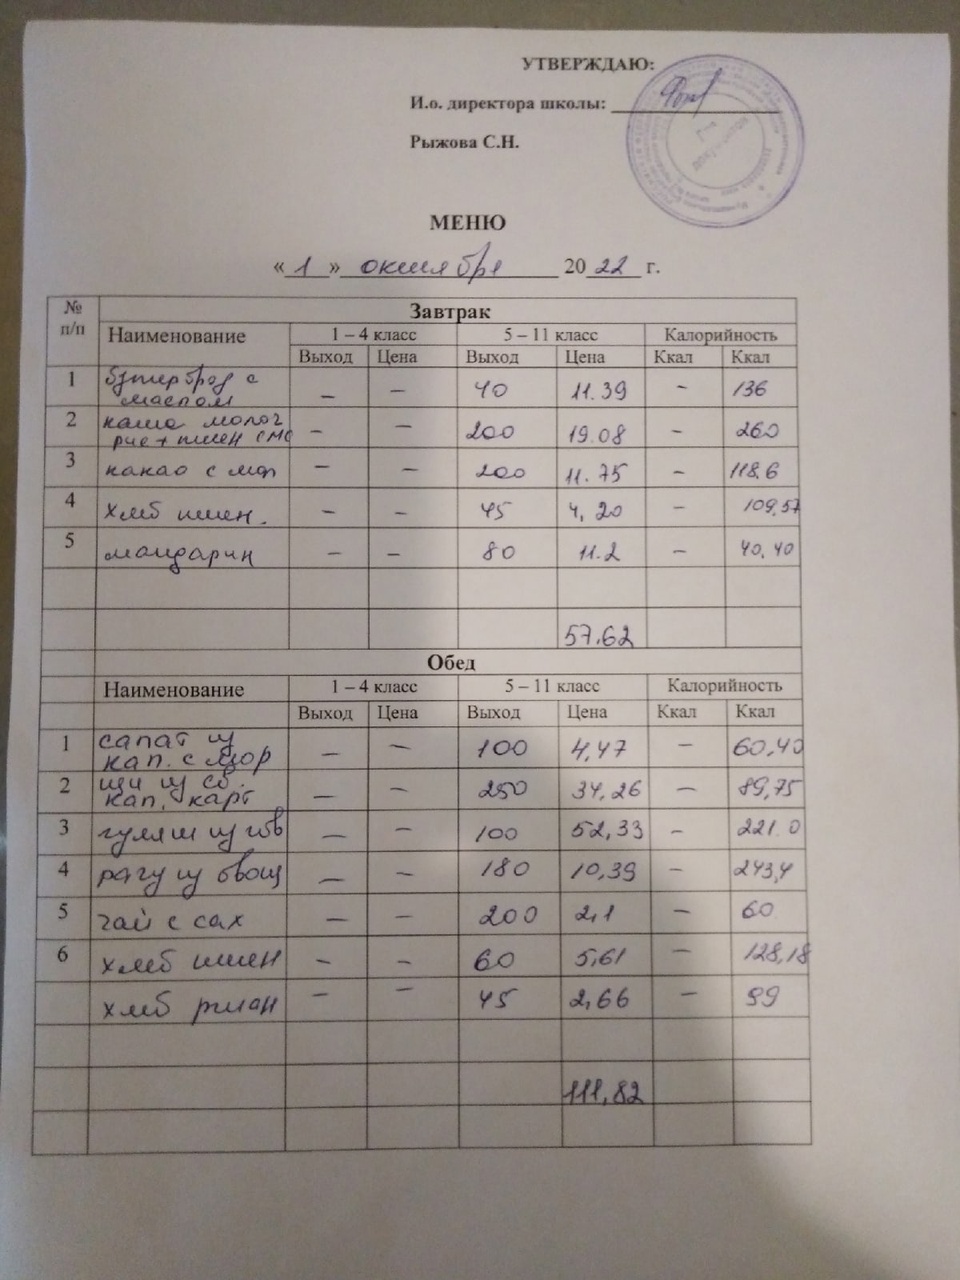 УТВЕРЖДАЮ:
И.о. директора школы:
Рыжова С.Н.
МЕНЮ
« 1 » октября 20 22 г.
№ п/п Завтрак
Наименование 1 – 4 класс 5 – 11 класс Калорийность
Выход Цена Выход Цена Ккал Ккал
1 бутерброд с маслом – – 40 11.39 – 136
2 каша молоч рис + пшен с мс – – 200 19.08 – 260
3 какао с мол – – 200 11.75 – 118.6
4 хлеб пшен. – – 45 4,20 – 109,57
5 мандарин – – 80 11.2 – 40,40
57.62
Обед
Наименование 1 – 4 класс 5 – 11 класс Калорийность
Выход Цена Выход Цена Ккал Ккал
1 салат из кап. с мор – – 100 4,47 – 60,40
2 щи из св. кап. карт – – 250 34,26 – 89,75
3 гуляш из гов – – 100 52,33 – 221.0
4 рагу из овощ – – 180 10,39 – 243,4
5 чай с сах – – 200 2,1 – 60
6 хлеб пшен – – 60 5,61 – 128,18
хлеб ржан – – 45 2,66 – 99
111,82